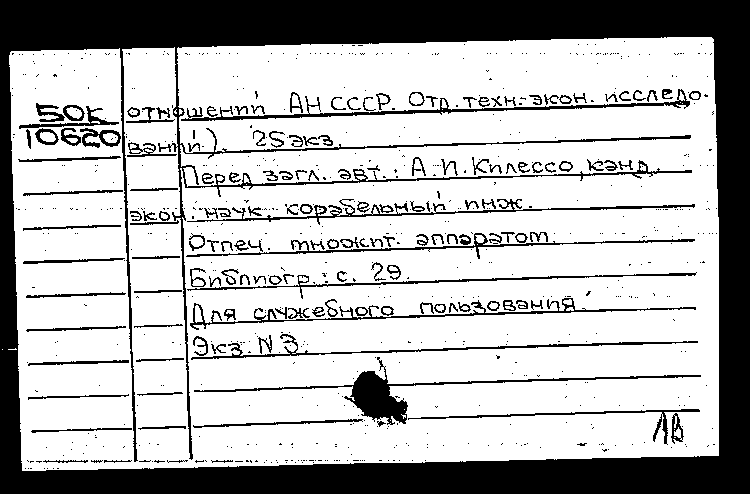 50К
10620
отношений АН СССР. Отд. техн.-экон. исследо-
ваний). 25экз.
Перед загл. авт.: А.И. Килессо, канд.
экон. наук, корабельный инж.
Отпеч. множит. аппаратом.
Библиогр.: с. 29.
Для служебного пользования.
Экз. N 3.
ЛВ